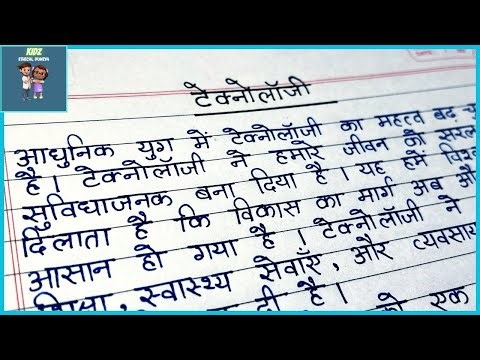 KIDZ
ETHICAL DUNIYA
टेक्नोलॉजी
आधुनिक युग में टेक्नोलॉजी का महत्व बढ़
है। टेक्नोलॉजी ने हमारे जीवन को सरल
सुविधाजनक बना दिया है। यह हमें
दिलाता है कि विकास का मार्ग अब
आसान हो गया है। टेक्नोलॉजी ने
स्वास्थ्य सेवाएँ, और व्यवसाय
दी है।
को एक